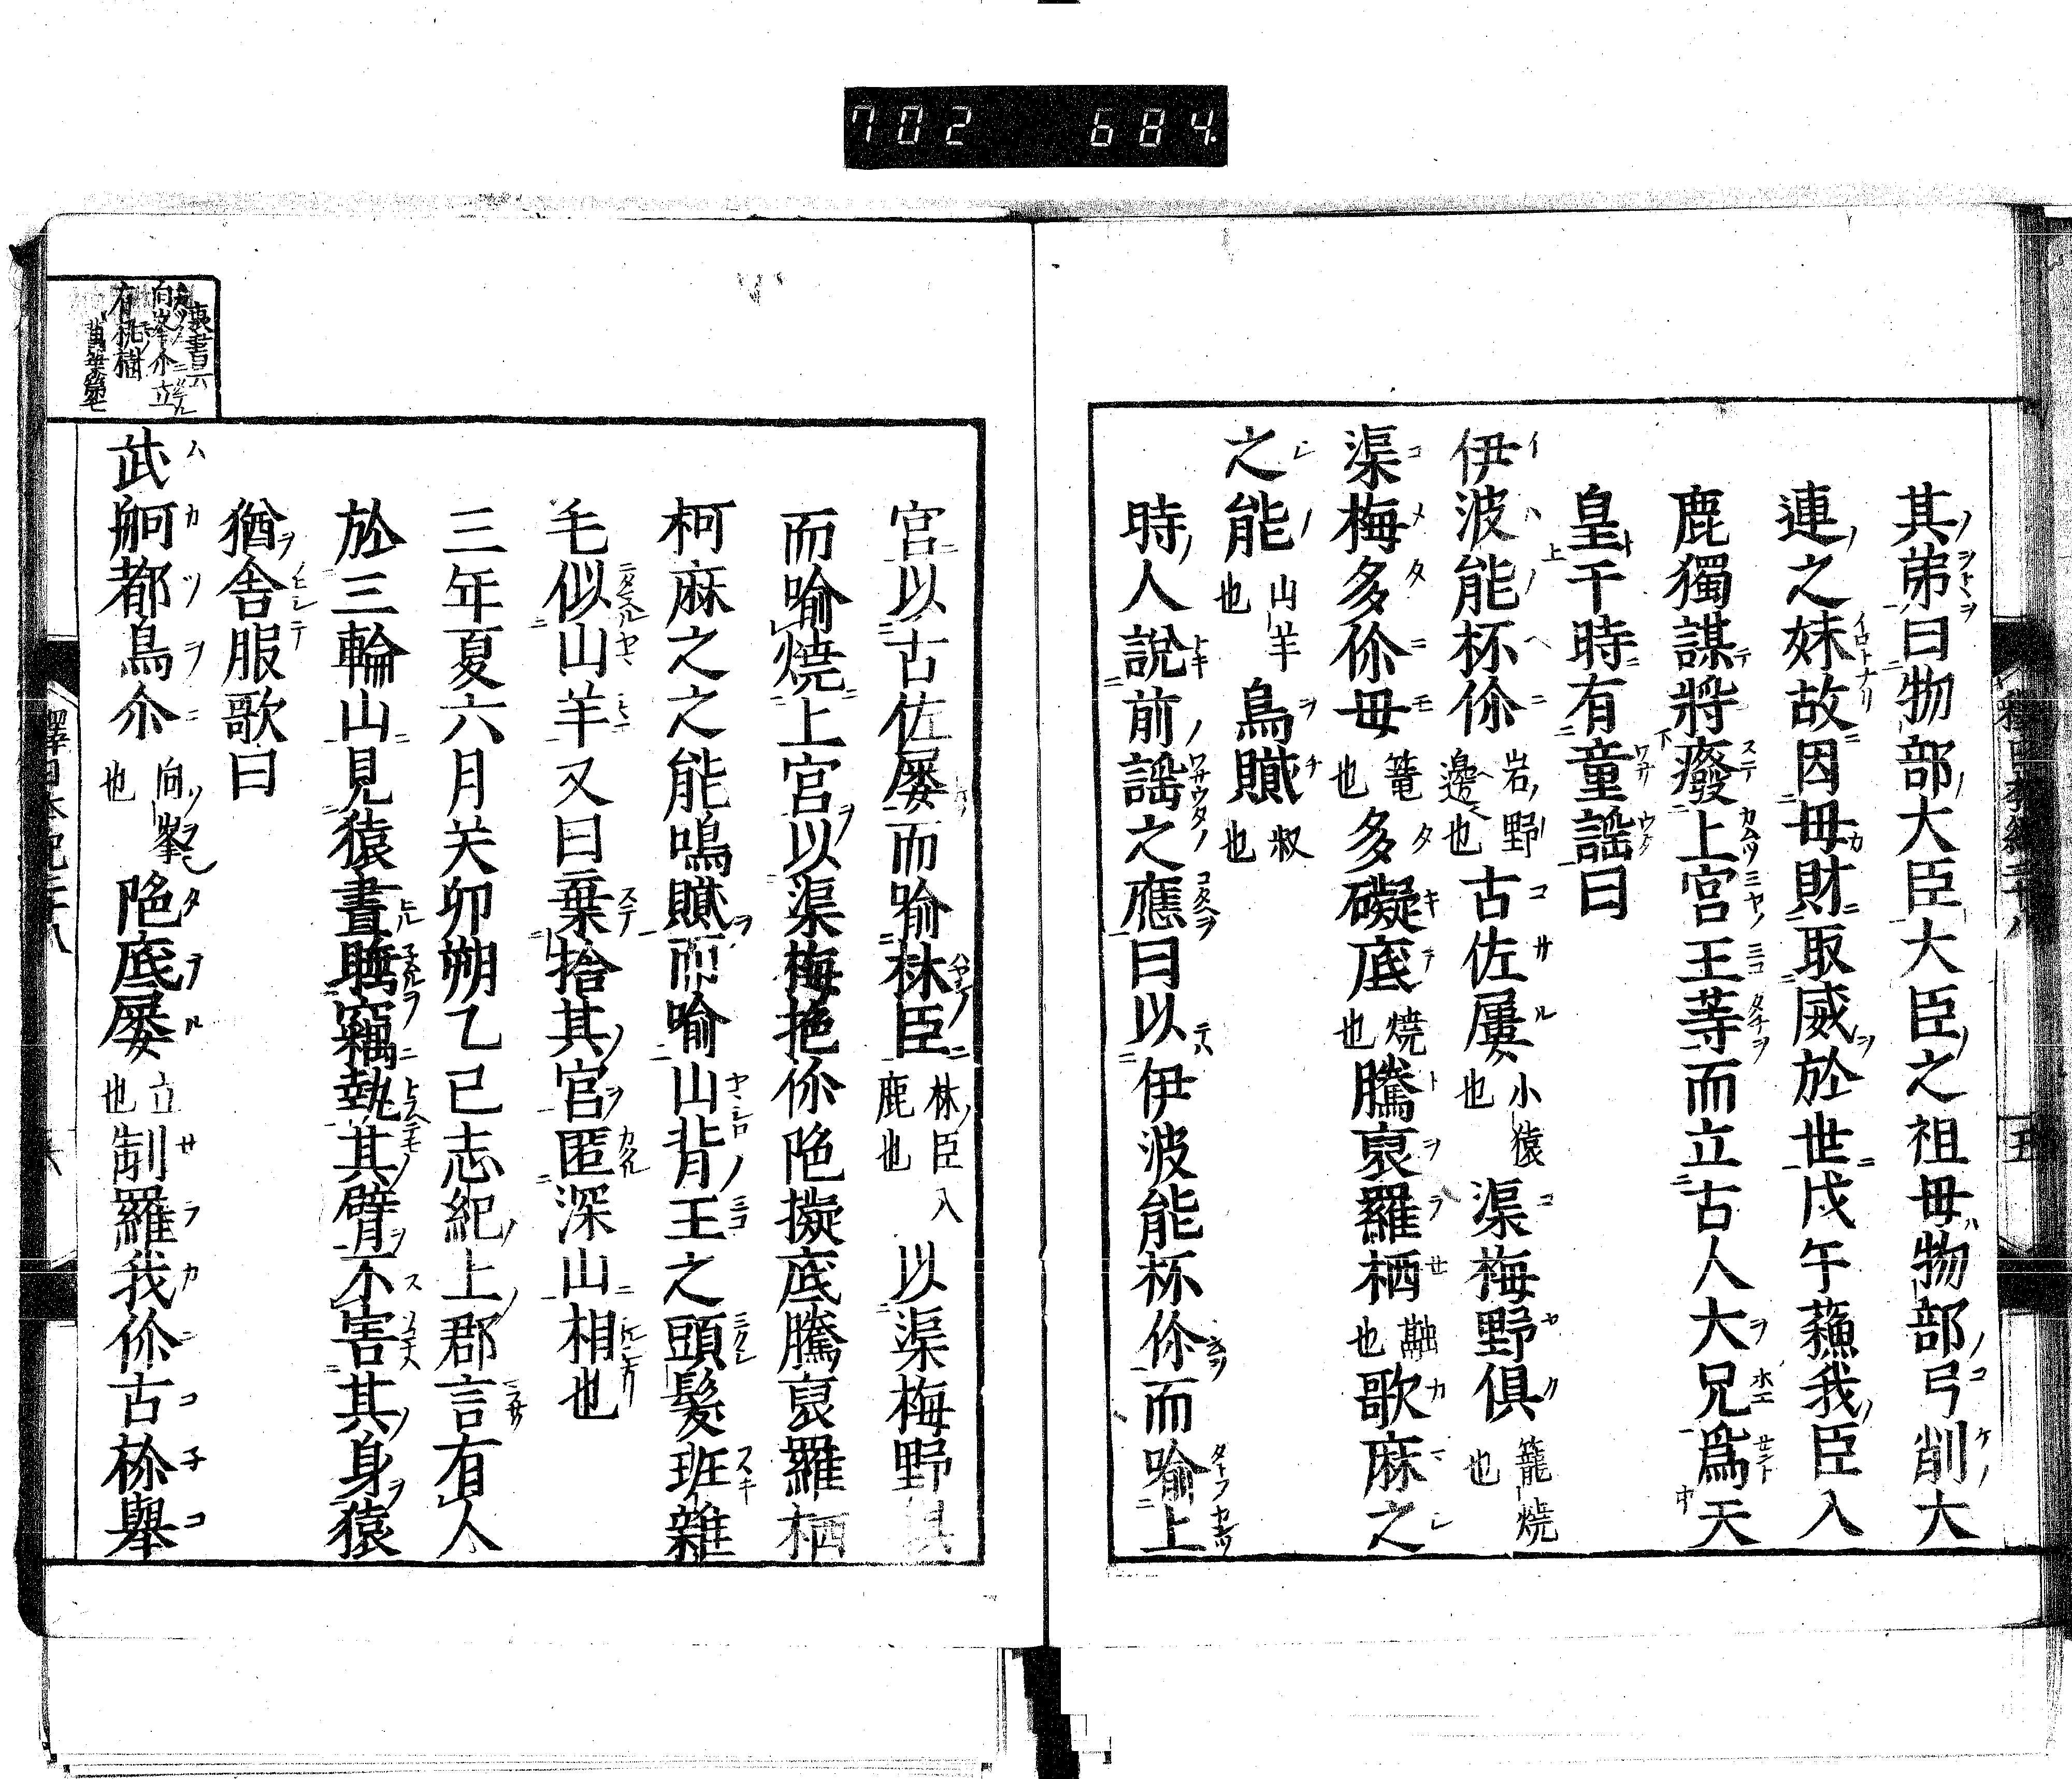 702 684
其弟曰物部大臣大臣之祖母物部弓削大
連之妹故因母財取威於世戊午蘓我臣入
鹿獨謀將癈上宮王等而立古人大兄爲天
皇干時有童謡曰
伊波能杯伱岩野邊也古佐屢小猿也渠梅野俱籠燒也
渠梅多伱毋篭也多礙底燒也騰裒羅栖融也歌麻之
之能山羊也烏膱叔也
時人說前謡之應曰以伊波能杯伱而喻上
宮以古佐屢而喻林臣林臣入鹿也以渠梅野俱
而喻燒上宮以渠梅拖伱陁擬底騰裒羅栖
柯麻之之能嗚膱而喻山背王之頭髮班雜
毛似山羊又曰棄捨其宮匿深山相也
三年夏六月关卯朔乙巳志紀上郡言有人
於三輪山見猿晝睡竊執其臂不害其身猿
猶舎服歌曰
武舸都烏尒向峯也陁底屢立也制羅我伱古祢擧
裏書曰六
向峯尒立
有桃樹
萬葉第七